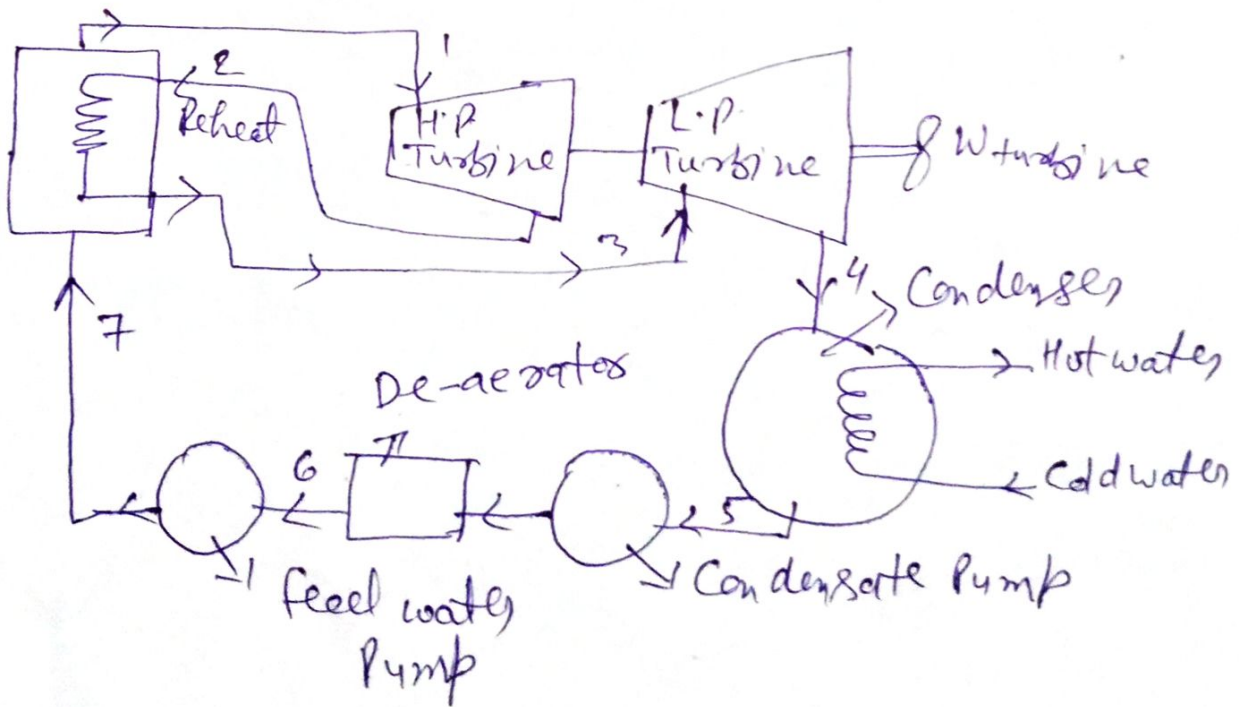 1
2
Reheat
H.P.
Turbine
L.P.
Turbine
W turbine
3
4
Condenser
7
Hot water
De-aerator
6
5
Cold water
Condensate Pump
feed water
Pump